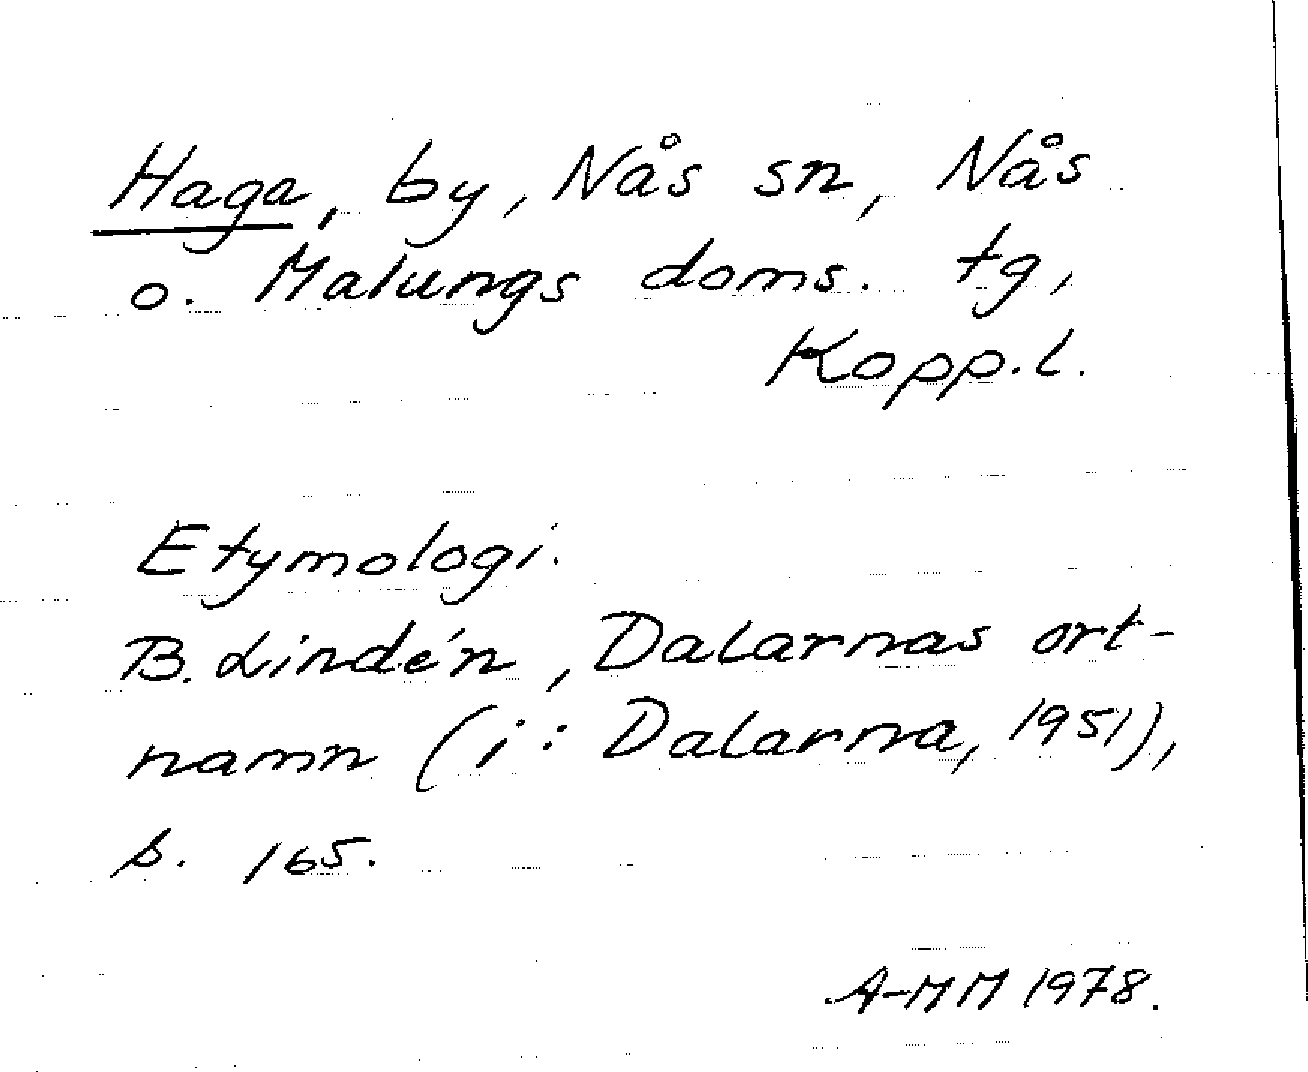 Haga, by, Nås sn, Nås
o. Malungs doms. tg,
Kopp.l.
Etymologi.
B. Lindén, Dalarnas ort-
namn (i: Dalarna, 1951),
s. 165.
A-MM 1978.